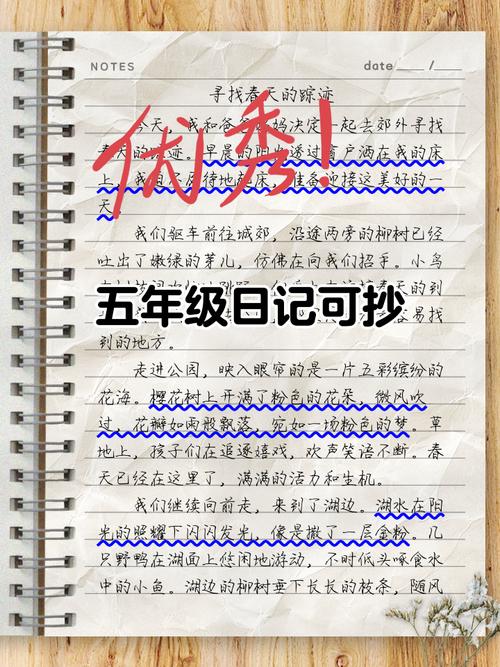 NOTES
date ___ / ___
寻找春天的踪迹
今天,我和爸爸妈妈决定一起去郊外寻找
春天的踪迹。早晨的阳光透过窗户洒在我的床
上,我迫不及待地起床,准备迎接这美好的一
天。
优秀!
我们驱车前往城郊,沿途两旁的柳树已经
吐出了嫩绿的芽儿,仿佛在向我们招手。小鸟
春天的到
五年级日记可抄
容易找
到的地方。
走进公园,映入眼帘的是一片五彩缤纷的
花海。樱花树上开满了粉色的花朵,微风吹
过,花瓣如雨般飘落,宛如一场粉色的梦。草
地上,孩子们在追逐嬉戏,欢声笑语不断。春
天已经在这里了,满满的活力和生机。
我们继续向前走,来到了湖边。湖水在阳
光的照耀下闪闪发光,像是撒了一层金粉。几
只野鸭在湖面上悠闲地游动,不时低头啄食水
中的小鱼。湖边的柳树垂下长长的枝条,随风